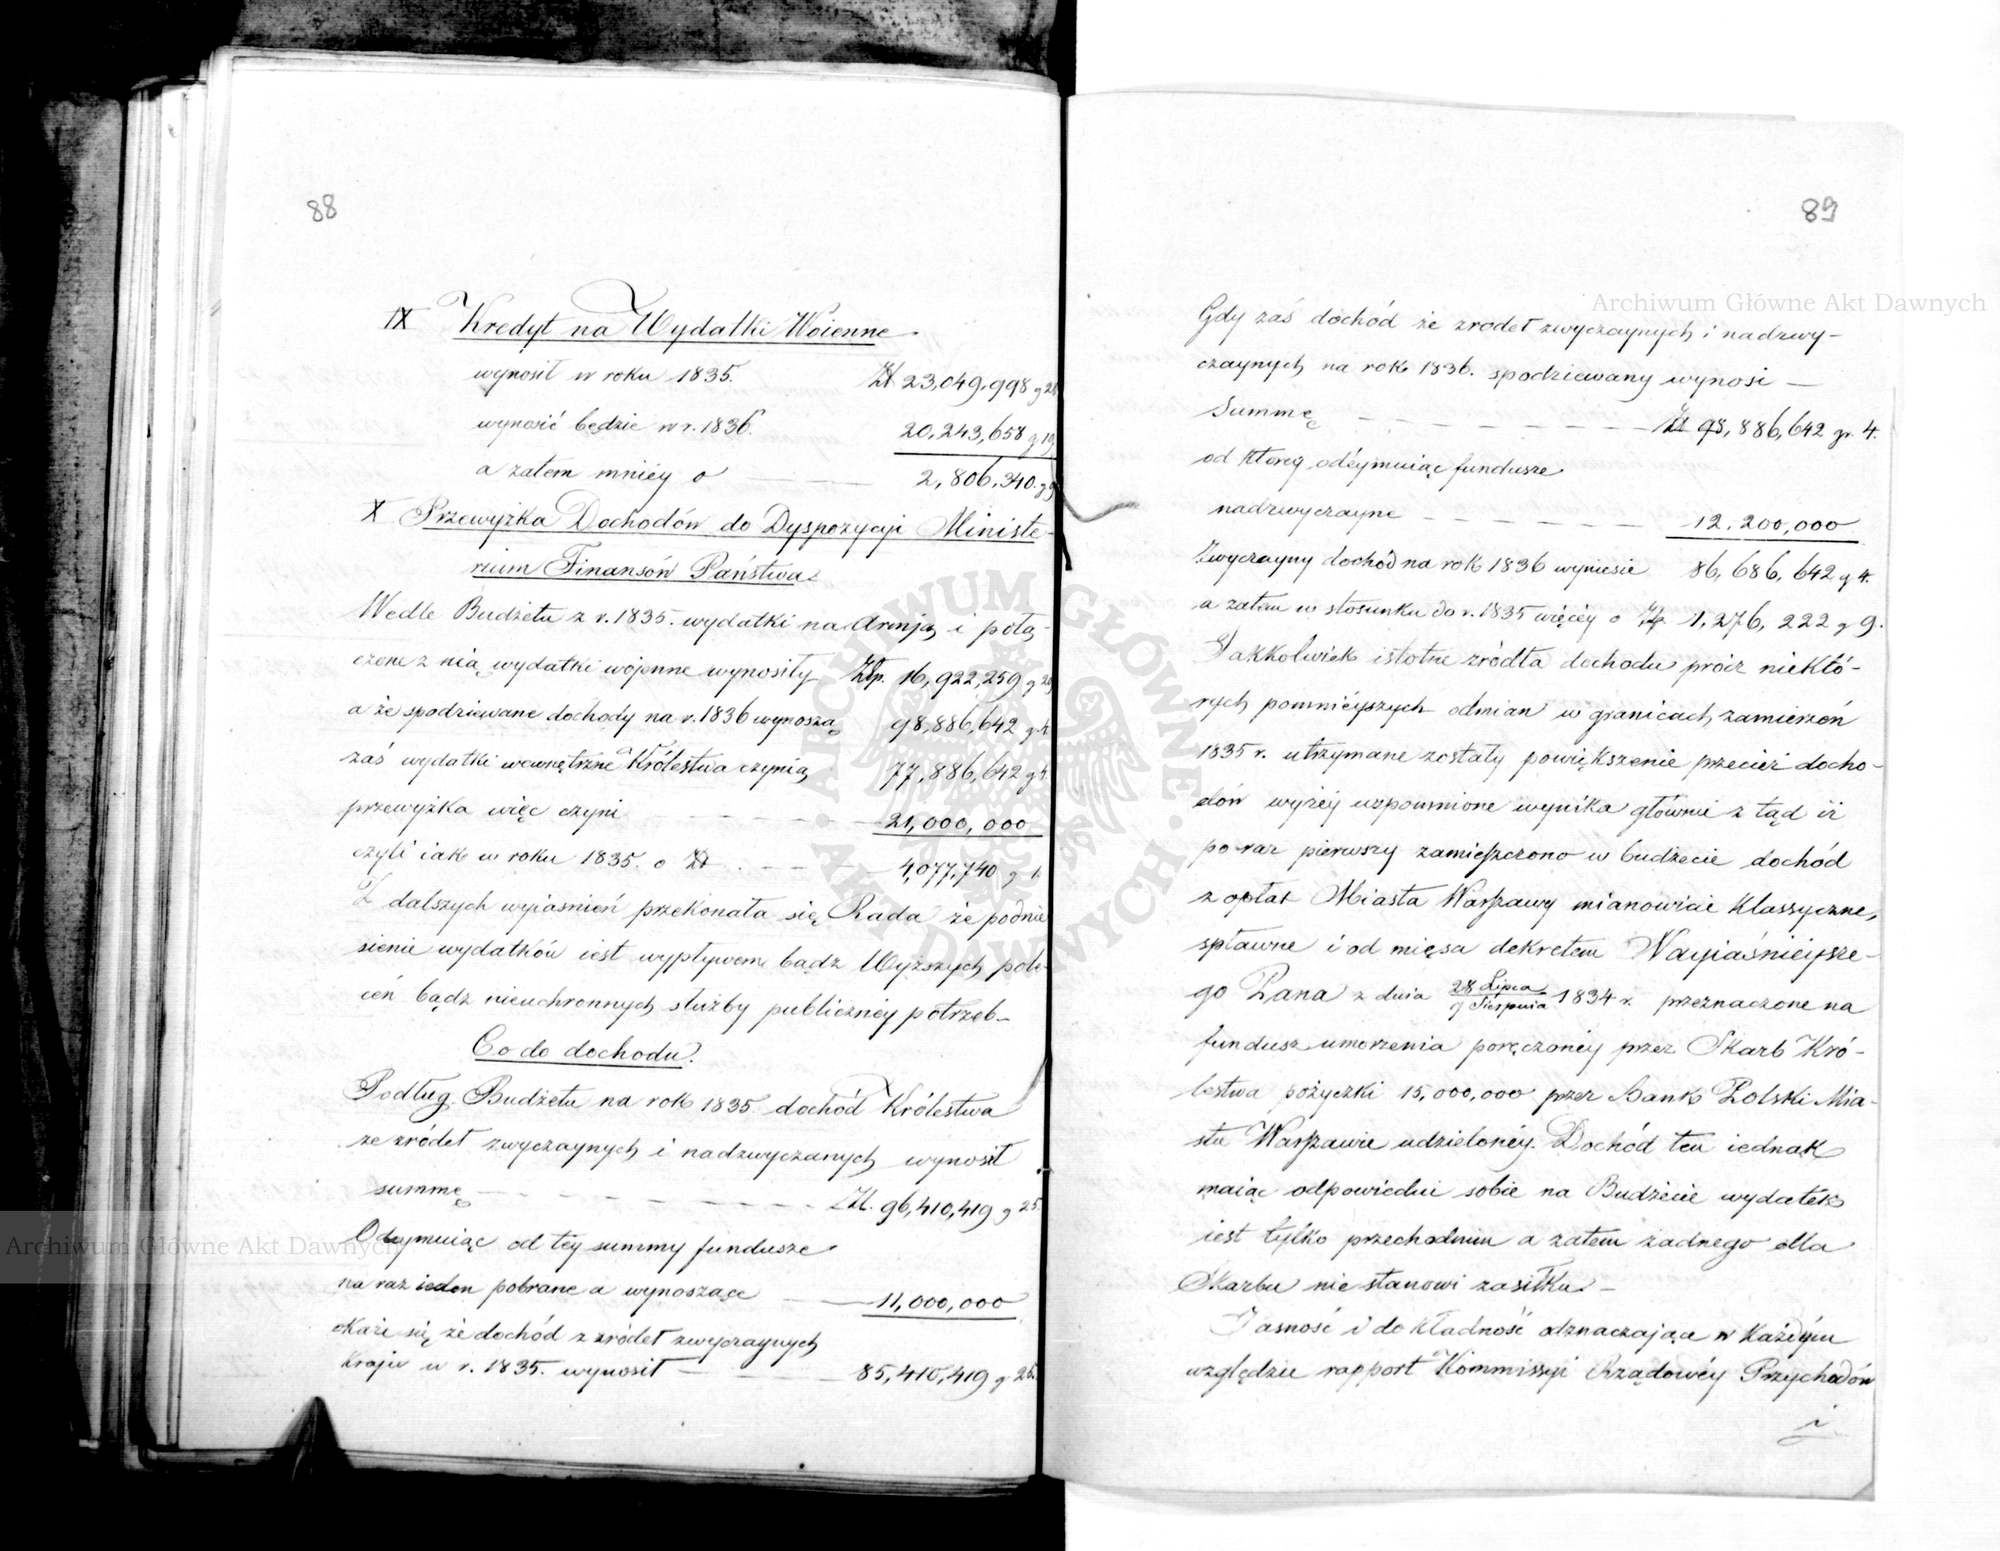 88
IX Kredyt na Wydatki Woienne
wynosił w roku 1835. Zł 23,049,998 g 28
wynosić będzie w r. 1836. 20,243,658 g 19
a zatem mniéy o 2,806,340. g 9
X Przewyżka Dochodów do Dyspozycji Ministe-
rium Finansów Państwa.
Wedle Budżetu z r. 1835. wydatki na Armją i połą-
czone z nią wydatki wojenne wynosiły Złp. 16,922,259 g 29
a że spodziewane dochody na r. 1836 wynoszą 98,886,642 g 4.
zaś wydatki wewnętrzne Królestwa czynią 77,886,642 g 4.
przewyżka więc czyni 21,000,000
czyli iak w roku 1835. o Zł 4,077,740 g 1.
Z dalszych wyiaśnień przekonała się Rada że podnie
sienie wydatków iest wypływem bądź Wyższych pole-
ceń bądz nieuchronnych służby publicznéy potrzeb –
Co do dochodu.
Podług Budżetu na rok 1835 dochód Królestwa
ze źródeł zwyczaynych i nadzwyczanych wynosił
summę Zł. 96,410,419 g 25.
Odeymuiąc od tey summy fundusze
na raz ieden pobrane a wynoszące 11,000,000
okaże się że dochód z źródeł zwyczaynych
Kraju w r. 1835. wynosił – 85,410,419 g 25.
89
Gdy zaś dochód ze zrodeł zwyczaynych i nadzwy-
czaynych na rok 1836. spodziewany wynosi –
Summę Zł 98,886,642 gr. 4.
od któréy odéymuiąc fundusze
nadzwyczayne 12,200,000
Zwyczayny dochód na rok 1836 wyniesie 86,686,642 g 4.
a zatem w stosunku do r. 1835 więcéy o Złp. 1,276,222 g 9.
Jakkolwiek istotne zródła dochodu prócz niektó-
rych pomniéyszych odmian w granicach zamierzeń
1835 r. utrzymane zostały powiększenie przecież docho-
dów wyżéy wspomnione wynika głównie z tąd iż
po raz pierwszy zamieszczono w budżecie dochód
z opłat Miasta Warszawy mianowicie Klassyczne,
spławne i od mięsa dekretem Nayiaśniejsze-
go Pana z dnia 28 Lipca / 9 Sierpnia 1834 r. przeznaczone na
fundusz umorzenia poręczonéy przez Skarb Kró-
lestwa pożyczki 15,000,000 przez Bank Polski Mia-
stu Warszawie udzielonéy. Dochód ten iednak
maiąc odpowiedni sobie na Budżecie wydatek
iest tylko przechodnim a zatem żadnego dla
Skarbu nie stanowi zasiłku. –
Jasność i dokładność odznaczające w każdym
względzie rapport Kommissyi Rządowéy Przychodów
i
Archiwum Główne Akt Dawnych
Archiwum Główne Akt Dawnych
ARCHIWUM GŁÓWNE AKT DAWNYCH